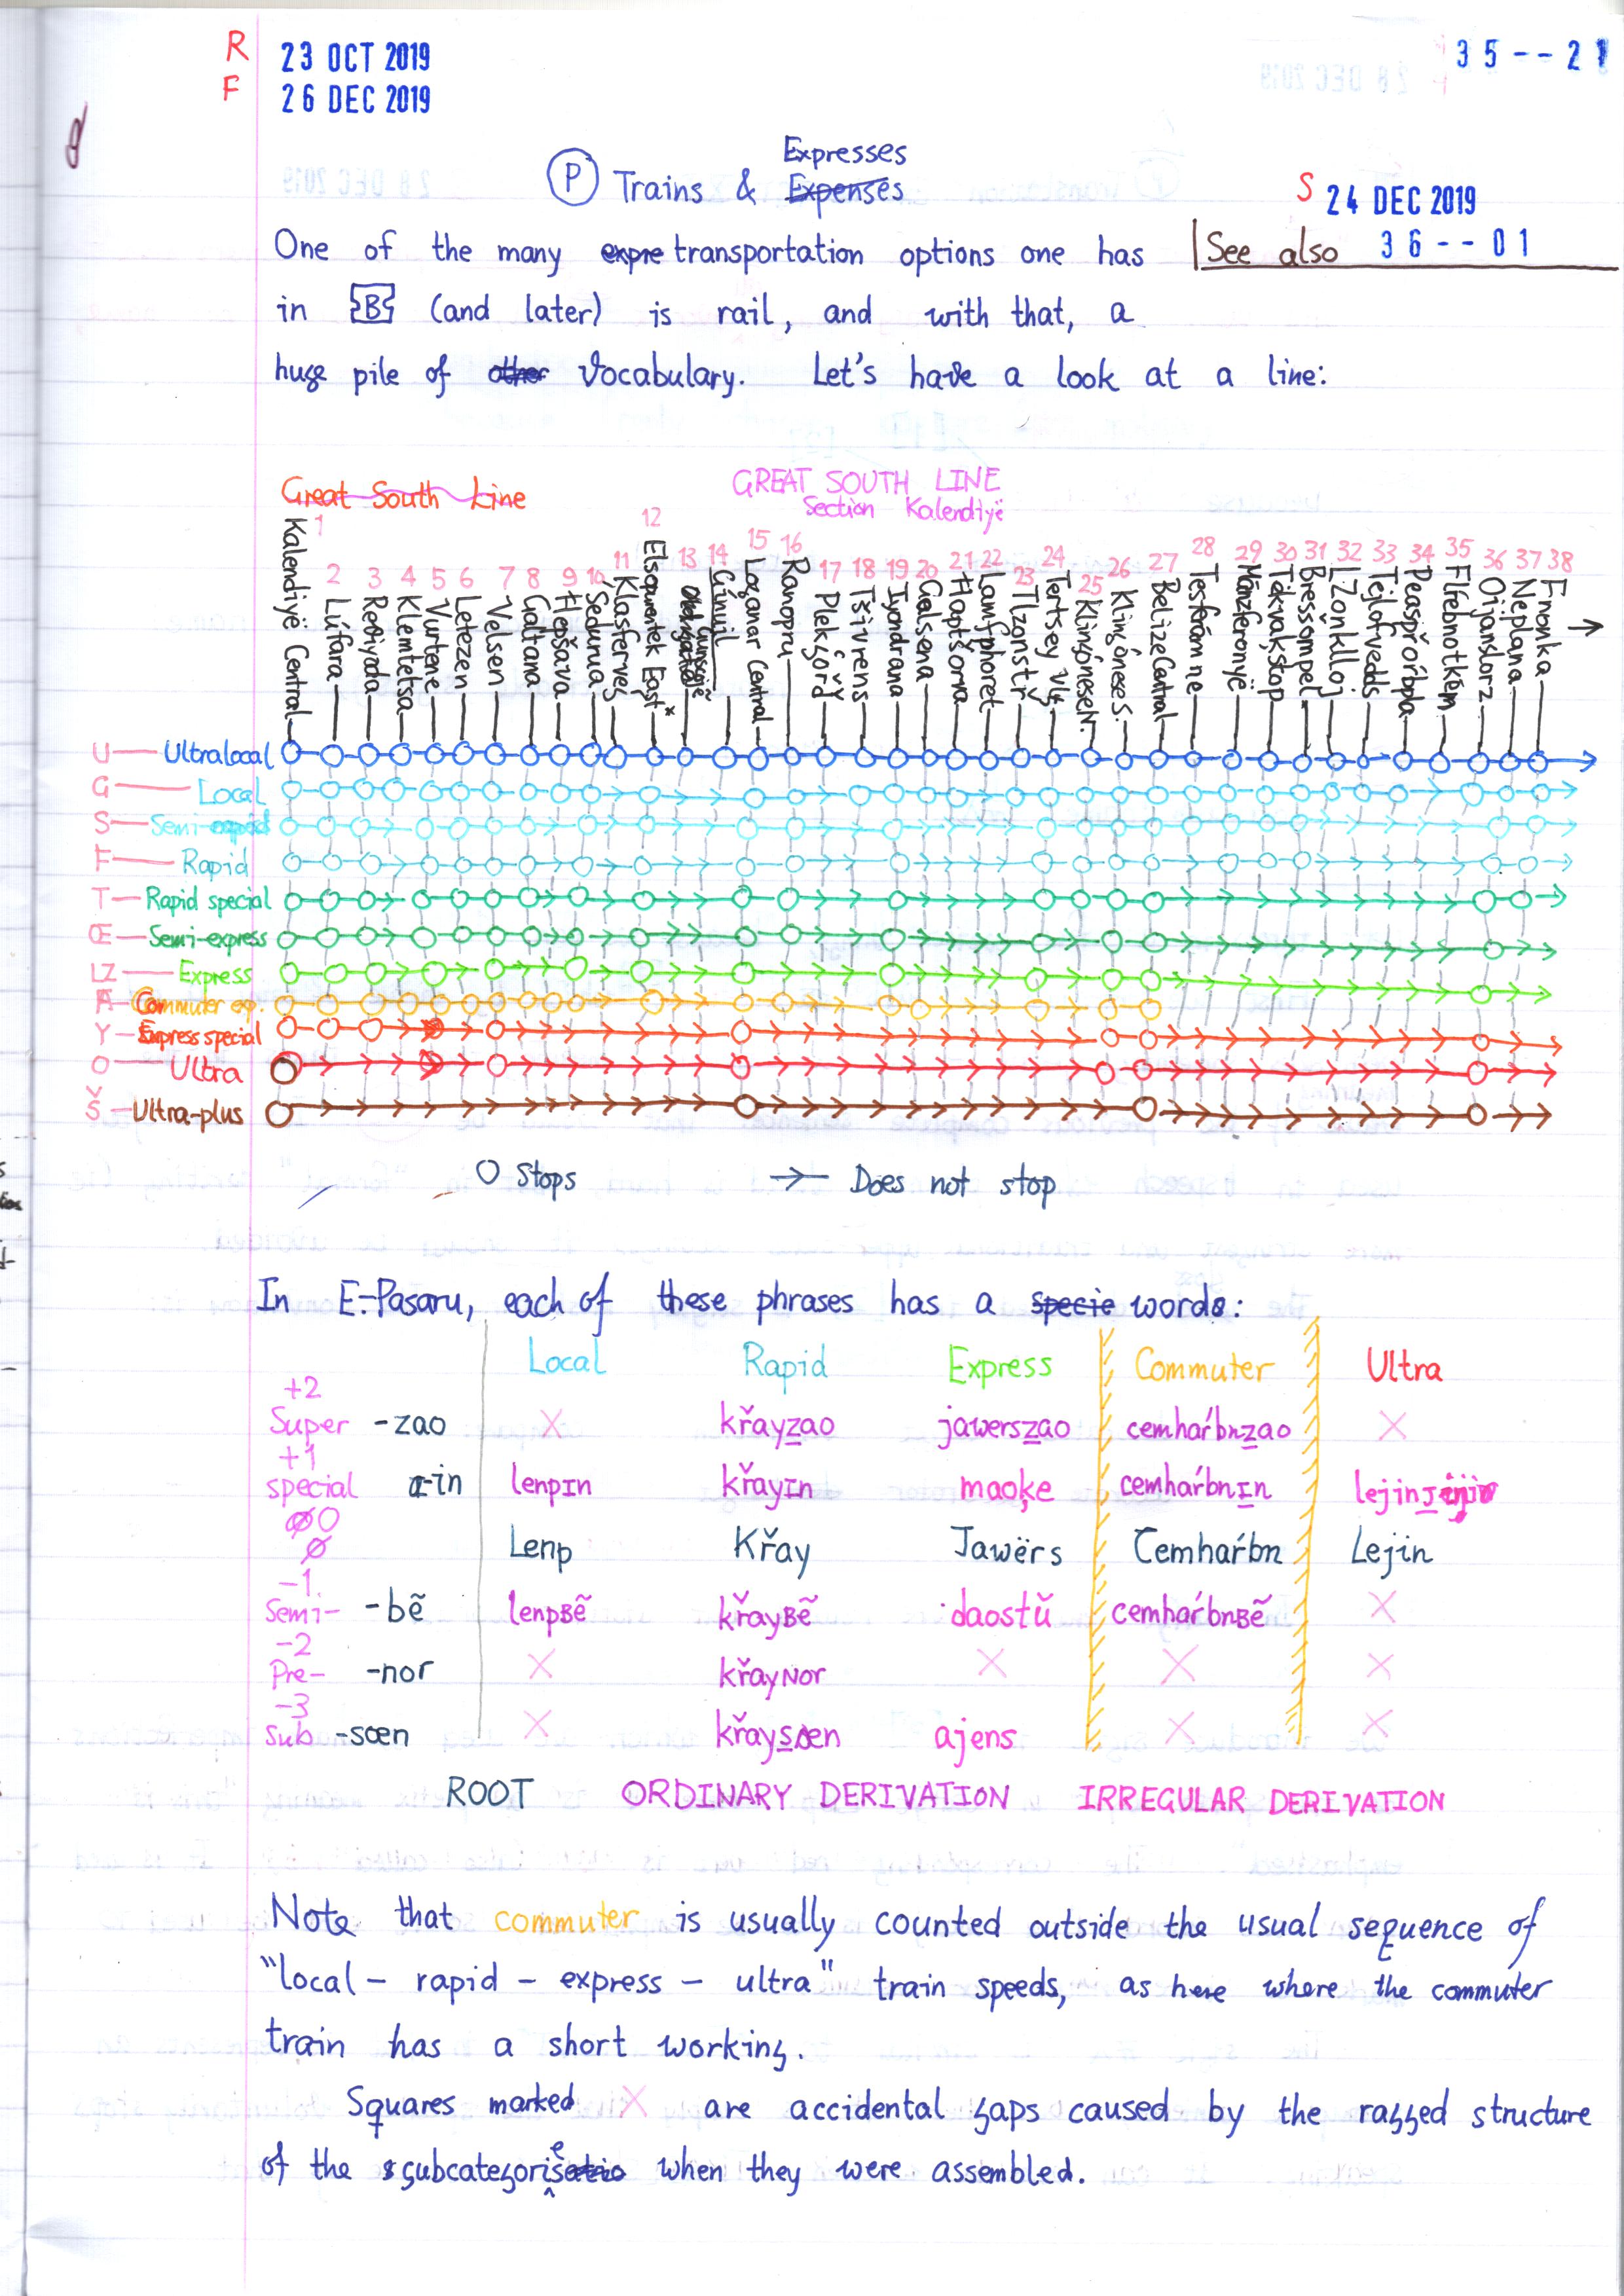 R 23 OCT 2019
F 26 DEC 2019
35--21
Expresses
Ⓟ Trains & Expenses
S 24 DEC 2019
See also 36--01
One of the many expre transportation options one has
in B (and later) is rail, and with that, a
huge pile of other vocabulary. Let's have a look at a line:
Great South Line
GREAT SOUTH LINE
Section Kalendiyë
1 2 3 4 5 6 7 8 9 10 11 12 13 14 15 16 17 18 19 20 21 22 23 24 25 26 27 28 29 30 31 32 33 34 35 36 37 38
Kalendiyë Central
Lúfara
Klemtetsa
Vurtene
Letezen
Velsen
Galtana
Hepšava
Sedunia
Klasternes
East
Gínuil
Central
Ranopru
Tšivrens
Iyondrana
Galsena
Haptšorva
Lamfphoret
Tlzonstř
Belize Central
Neplana
Fnonka
U Ultralocal
G Local
S Semi-rapid
F Rapid
T Rapid special
Œ Semi-express
LZ Express
A Commuter exp.
Y Express special
O Ultra
Š Ultra-plus
O Stops → Does not stop
In E-Pasaru, each of these phrases has a specie words:
Local Rapid Express Commuter Ultra
+2
Super -zao X křayzao jawerszao cemhaŕbnzao X
+1
special -in lenpIn křayIn maoķe cemhaŕbnIn lejin
0
Ø Lenp Křay Jawërs Cemhaŕbn Lejin
-1
Semi- -bẽ lenpBẽ křayBẽ daostŭ cemhaŕbnBẽ X
-2
Pre- -nor X křayNor X X X
-3
Sub -sœn X křaysœn ajens X X
ROOT ORDINARY DERIVATION IRREGULAR DERIVATION
Note that commuter is usually counted outside the usual sequence of
"local - rapid - express - ultra" train speeds, as here where the commuter
train has a short working.
Squares marked X are accidental gaps caused by the ragged structure
of the subcategorise when they were assembled.